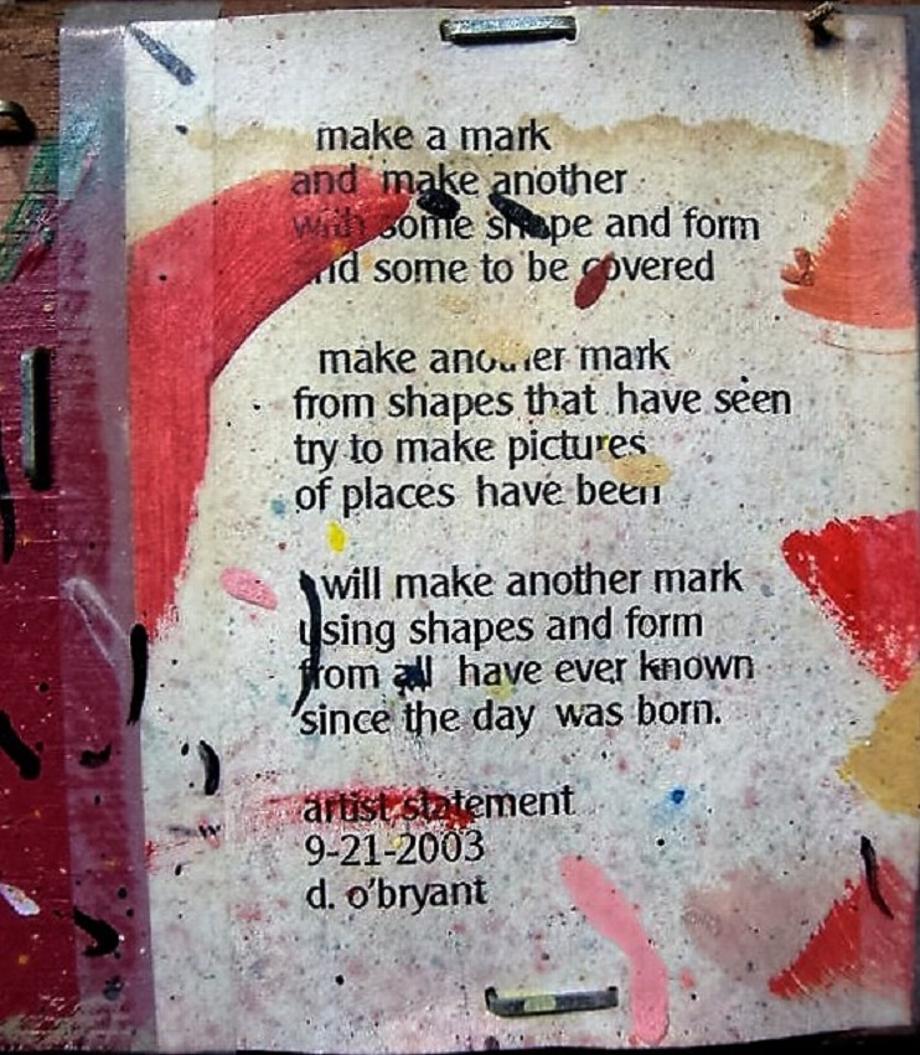 make a mark
and make another
with some shape and form
and some to be covered
make another mark
from shapes that have seen
try to make pictures
of places have been
will make another mark
using shapes and form
from all have ever known
since the day was born.
artist statement
9-21-2003
d. o'bryant